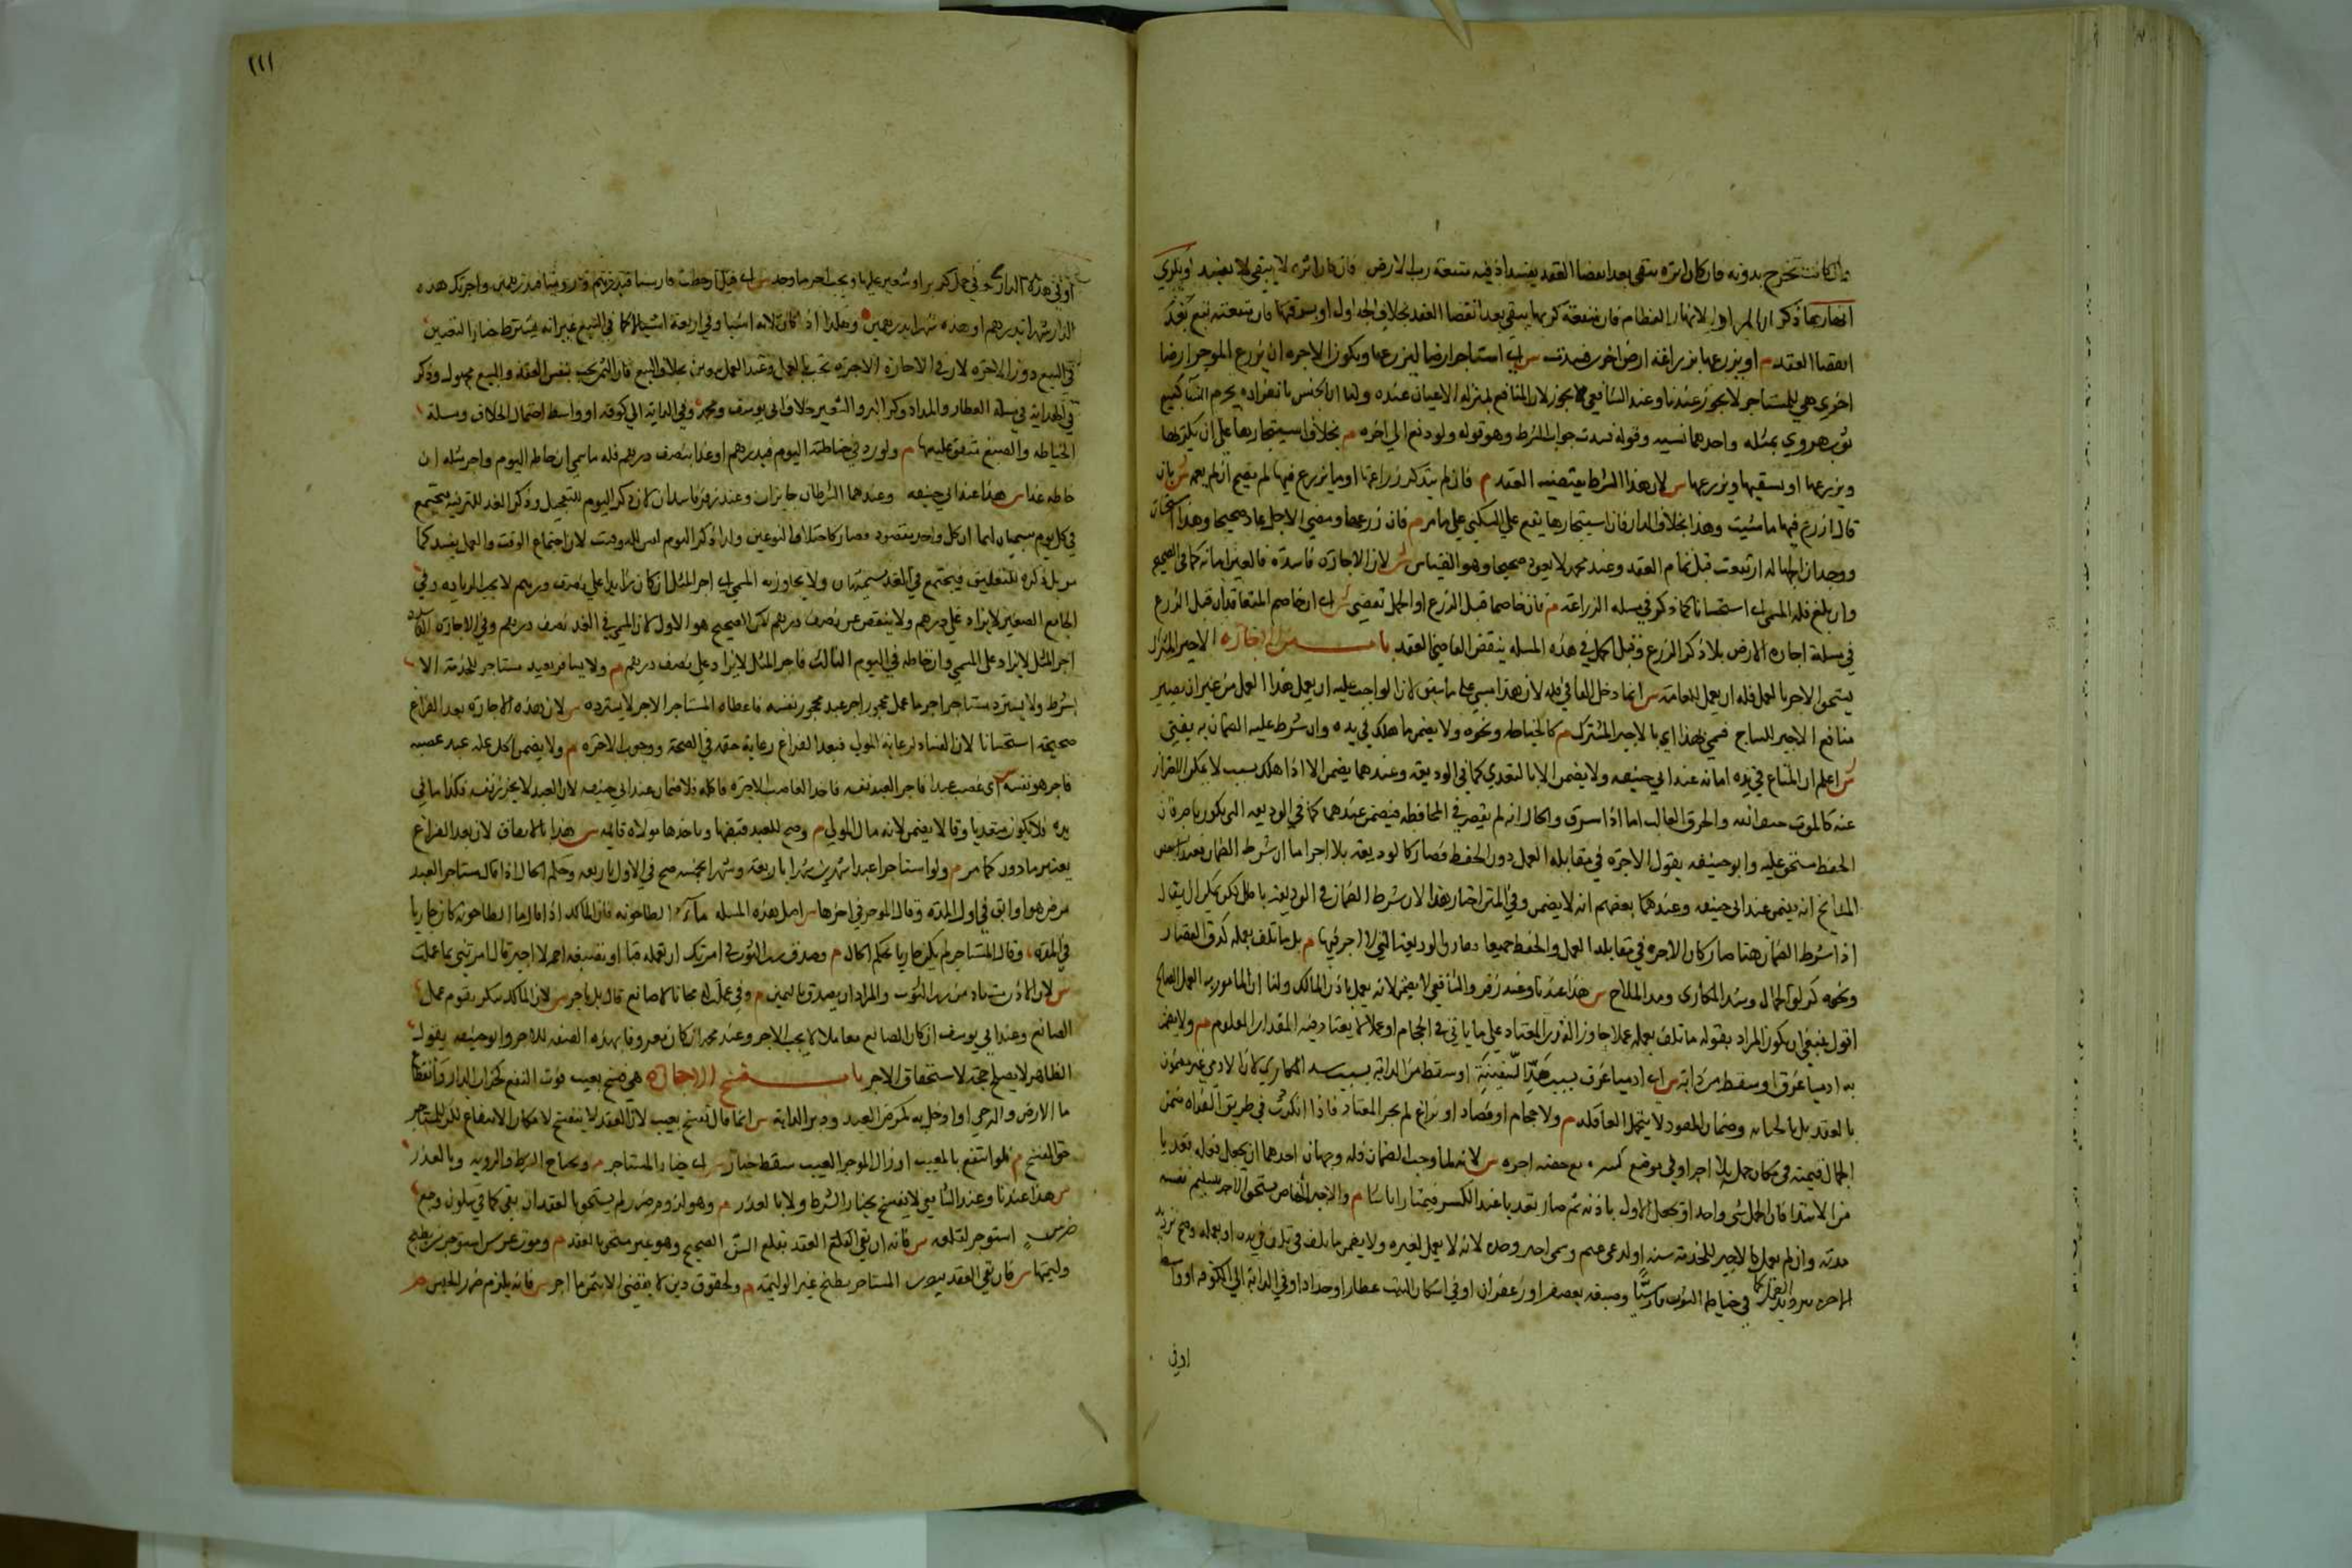 وان كانت تخرج بدونه فان كان اثره يبقى بعد انقضا العقد يفسد اذ فيه منفعة رب الارض فان كان اثره لا يبقى لا يفسد او بكرى
انهارها ذكر ان المراد الانهار العظام فان منفعة كريها يبقى بعد انقضا العقد بخلاف الجداول او يسرقنها فان منفعته تبقى بعد
انقضا العقد م او يزرعها بزراعة ارض اخرى فسدت س اى استاجر ارضا ليزرعها ويكون الاجرة ان يزرع الموجر ارضا
اخرى هي للمستاجر لا يجوز عندنا وعند الشافعي يجوز لان المنافع بمنزلة الاعيان عنده ولنا ان الجنس بانفراده يحرم النسا كبيع
ثوب هروي بمثله واحدهما نسيه وقوله فسدت جواب الشرط وهو قوله ولو دفع الى اخره م بخلاف استيجارها على ان يكربها
ويزرعها او يسقيها ويزرعها س لان هذا الشرط يقتضيه العقد م فان لم يذكر زراعتها او ما يزرع فيها لم يصح ان لم يعمم س بان
قال ازرع فيها ما شيت وهذا بخلاف الدار فان استيجارها يقع على السكنى على ما مر م فان زرعها ومضى الاجل عاد صحيحا وهذا استحسان
ووجه ان الجهالة ارتفعت قبل تمام العقد وعند محمد لا يعود صحيحا وهو القياس س لان الاجارة فاسدة فالعين امانة كما في الصحيح
وان بلغ فله المسمى استحسانا كما ذكر في مسله الزراعة م فان خاصما قبل الزرع او الحمل نقض س اى ان خاصم المتعاقدان قبل الزرع
في مسلة اجارة الارض بلا ذكر الزرع وقبل الحمل في هذه المسله ينقض القاضي العقد باب من الاجارة الاجير المشترك
يستحق الاجر بالعمل فله ان يعمل للعامة س انما دخل الفا في فله لان هذا مبني على ما سبق لان الواجب عليه ان يعمل هذا العمل من غير ان يصير
منافع الاجير للمستاجر فسمي بهذا اي بالاجير المشترك م كالخياط ونحوه ولا يضمن ما هلك في يده وان شرط عليه الضمان به يفتى
س اعلم ان المتاع في يده امانه عند ابي حنيفه ولا يضمن الا بالتعدي كما في الوديعة وعندهما يضمن الا اذا هلك بسبب لا يمكن الاحتراز
عنه كالموت حتف انفه والحرق الغالب اما اذا سرق والحال انه لم يقصر في المحافظه فيضمن عندهما كما في الوديعه التي يكون باجرة فان
الحفظ مستحق عليه وابو حنيفه يقول الاجرة في مقابله العمل دون الحفظ فصار كالوديعة بلا اجر اما ان شرط الضمان فعند بعض
المشايخ انه يضمن عند ابي حنيفه وعند بعضهم انه لا يضمن وفي المتن اختار هذا لان شرط الضمان في الوديعة باطل لكن يمكن ان يقال
اذا شرط الضمان هنا صار كان الاجرة في مقابلة العمل والحفظ جميعا ففارق الوديعة التي لا اجر فيها م بل ما تلف بعمله كدق القصار
ونحوه كزلق الحمال وشد المكارى ومد الملاح س هذا عندنا وعند زفر والشافعي لا يضمن لانه يعمل باذن المالك ولنا ان المامور به العمل الصالح
اقول ينبغي ان يكون المراد بقوله ما تلف بعمله عملا جاوز القدر المعتاد على ما ياتي في الحجام او عملا لا يعتاد فيه المقدار المعلوم م ولا يضمن
به ادميا غرق او سقط من دابة س اى ادميا غرق بسبب مد السفينة او سقط من الدابة بسبب شد المكارى لان الادمي غير مضمون
بالعقد بل بالجناية وضمان المعهود لا يتحمل العاقلة م ولا حجام او فصاد او بزاغ لم يجز المعتاد فاذا انكسر دن في طريق الفرات ضمن
الحمال قيمته في مكان حمله بلا اجر او في موضع كسره مع حصة اجره س لانه لما وجب الضمان فله وجهان احدهما ان يجعل فعله تعديا
من الابتدا فان الحمل شى واحد او يجعل الاول باذنه ثم صار تعديا عند الكسر فيختار ايا شا م والاجير الخاص يستحق الاجر بتسليم نفسه
مدته وان لم يعمل كالاجير للخدمة سنة او لرعي غنم وسمى اجير وحد لانه لا يعمل لغيره ولا يضمن ما تلف في يده او بعمله وصح ترديد
الاجر بترديد العمل كما في خياط الثوب فارسيا وصبغه بعصفر او زعفران او في اسكان البيت عطارا او حدادا وفي الدابة الى الكوفة او واسط
او في
١١١
او في هذه الدار وفي حمل كر بر او شعير عليها ويجب اجر ما وجد س اى قيل ان خطت فارسيا فبدرهم وان روميا فبدرهمين واجرتك هذه
الدار شهرا بدرهم او هذه شهرا بدرهمين وهكذا اذا كان ثلاثة اشيا وفي اربعة اشيا لا كما في البيع غير انه يشترط خيار التعيين
في البيع دون الاجرة لان في الاجارة الاجرة تجب بالعمل وعند العمل يتعين بخلاف البيع فان الثمن يجب بنفس العقد والمبيع مجهول وذكر
في الهداية في مسلة العطار والحداد وكر البر والشعير خلاف ابى يوسف ومحمد وفي الدابة الى كوفة او واسط احتمال الخلاف ومسلة
الخياطه والصبغ متفق عليهما م ولو ردد في خياطته اليوم فبدرهم او غدا بنصف درهم فله ما سمى ان خاطه اليوم واجر مثله ان
خاطه غدا س هذا عند ابي حنيفه وعندهما الشرطان جايزان وعند زفر فاسدان لان ذكر اليوم للتعجيل وذكر الغد للترفيه فيجتمع
في كل يوم تسميتان لهما ان كل واحد مقصود فصار كاختلاف النوعين وله ان ذكر اليوم ليس للتوقيت لان اجتماع الوقت والعمل يفسد كما
مر بل ذكره للتعليق فيجتمع في الغد تسميتان ولا يجاوز به المسمى اى اجر المثل ان كان زايدا على نصف درهم لا يجب الزيادة وفي
الجامع الصغير لا يزاد على درهم ولا ينقص عن نصف درهم لكن الصحيح هو الاول لان المسمى في الغد نصف درهم وفي الاجارة الفاسدة
اجر المثل لا يزاد على المسمى وان خاطه في اليوم الثالث فاجر المثل لا يزاد على نصف درهم م ولا يسافر بعبد مستاجر للخدمة الا
بشرط ولا يسترد مستاجر اجر ما عمل محجور اجر عبد محجور نفسه فاعطاه المستاجر الاجر لا يسترده س لان هذه الاجارة بعد الفراغ
صحيحة استحسانا لان الفساد لرعاية المولى فبعد الفراغ رعاية حقه في الصحة ووجوب الاجرة م ولا يضمن اكل غلة عبد غصبه
فاجر هو نفسه س اى غصب عبدا فاجر العبد نفسه فاخذ الغاصب الاجرة فاكله فلا ضمان عند ابي حنيفه لان العبد لا يحرز نفسه فكذا ما في
يده فلا يكون متعديا وقالا يضمن لانه مال المولى م وصح للعبد قبضها وياخذها مولاه قايمة س هذا بالاتفاق لان بعد الفراغ
يعتبر ماذونا كما مر م ولو استاجر عبدا شهرين شهرا باربعة وشهرا بخمسه صح في الاول باربعه وحكم الحال اذا قال مستاجر العبد
مرض هو او ابق في اول المدة وقال الموجر في اخرها س اصل هذه المسله الطاحونه فان المالك اذا قال ما الطاحونه كان جاريا
في المدة وقال المستاجر لم يكن جاريا يحكم الحال م وصدق رب الثوب في امرتك ان تعمله قبا او تصبغه احمر لا اجير قال امرتني بما عملت
س لان الاذن يستفاد من رب الثوب والمراد ان يصدق باليمين م وفي عملت لى مجانا لا صانع قال بل باجر س لان المالك ينكر تقوم عمل
الصانع وعند ابي يوسف ان كان الصانع معاملا له يجب الاجر وعند محمد ان كان معروفا بهذه الصنعة للاجر وابو حنيفه يقول
الظاهر لا يصلح حجة لاستحقاق الاجر باب فسخ الاجارة هي تفسخ بعيب فوت النفع كخراب الدار وانقطاع
ما الارض والرحى او اخل به كمرض العبد ودبر الدابة س انما قال تفسخ بعيب لان العقد لا ينفسخ لامكان الانتفاع لكن للمستاجر
حق الفسخ م فلو انتفع بالمعيب او ازال الموجر العيب سقط خياره س اى خيار المستاجر م وبخيار الشرط والروية وبالعذر
س هذا عندنا وعند الشافعي لا يفسخ بخيار الشرط ولا بالعذر م وهو لزوم ضرر لم يستحق بالعقد ان بقي كما في سكون وجع
ضرس استوجر لقلعه س فانه ان بقي العقد يقلع السن الصحيح وهو غير مستحق بالعقد م وموت عرس استوجر من يطبخ
وليمتها س فان بقي العقد يتضرر المستاجر بطبخ غير الوليمة م ولحقوق دين لا يقضى الا بثمن ما اجر س فانه يلزم ضرر الحبس م